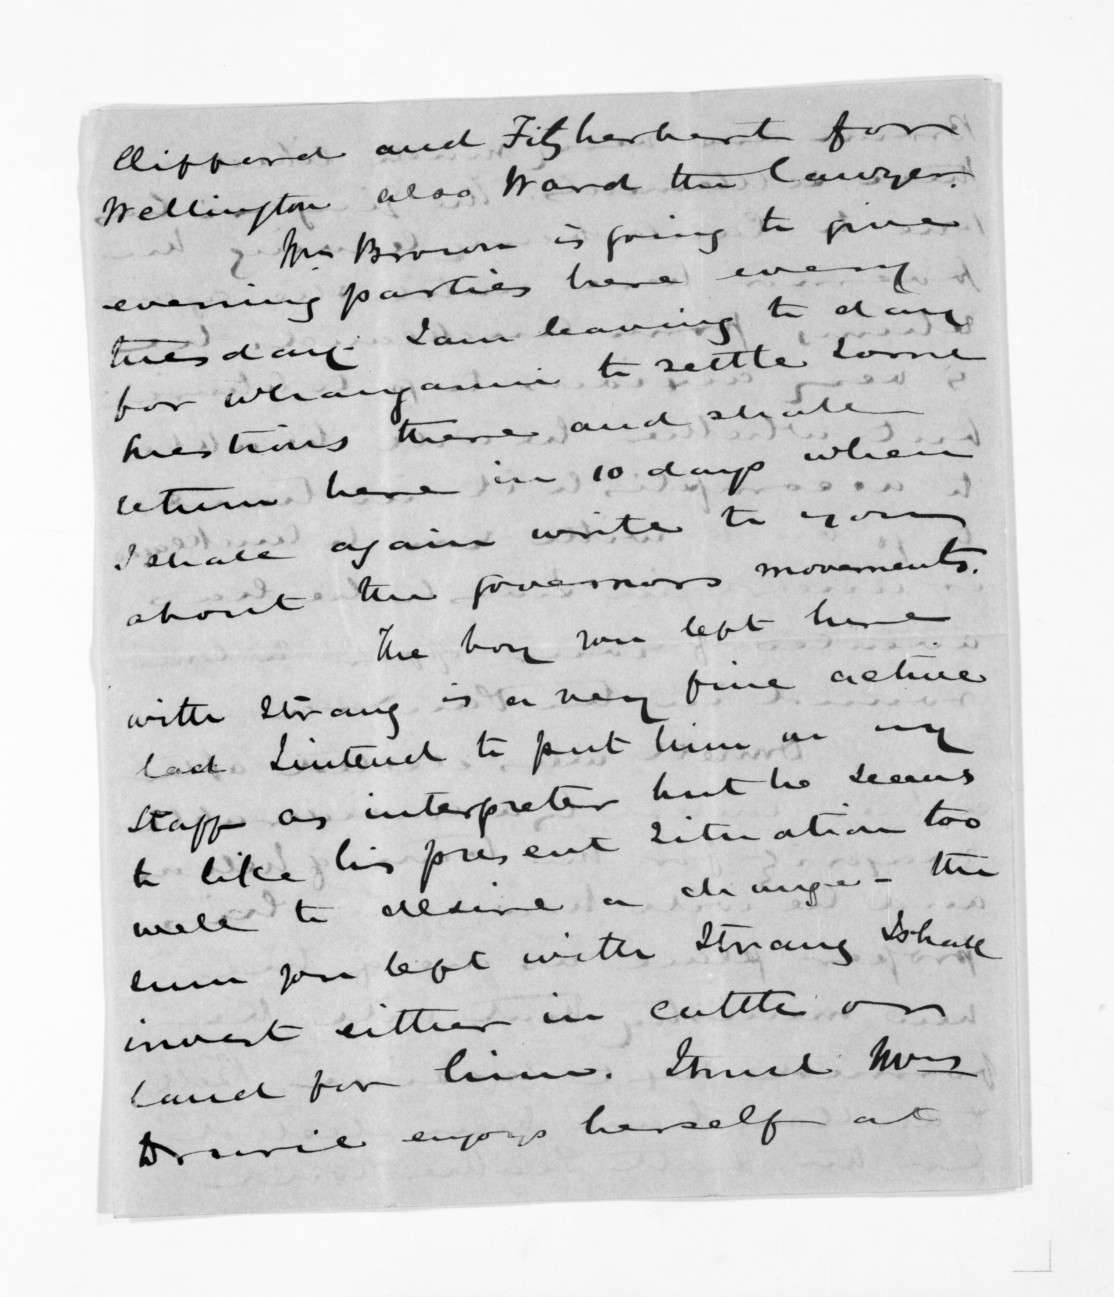 Clifford and Fitzherbert for
Wellington also Ward the lawyer.
Mrs Brown is going to give
evening parties here every
tuesday. I am leaving to day
for Whanganui to settle some
questions there and shall
return here in 10 days when
I shall again write to you
about the governors movements.
The boy you left here
with Strang is a very fine active
lad I intend to put him on my
Staff as interpreter but he seems
to like his present situation too
well to desire a change - the
sum you left with Strang I shall
invest either in cattle or
land for him. I trust Mrs
enjoys herself at